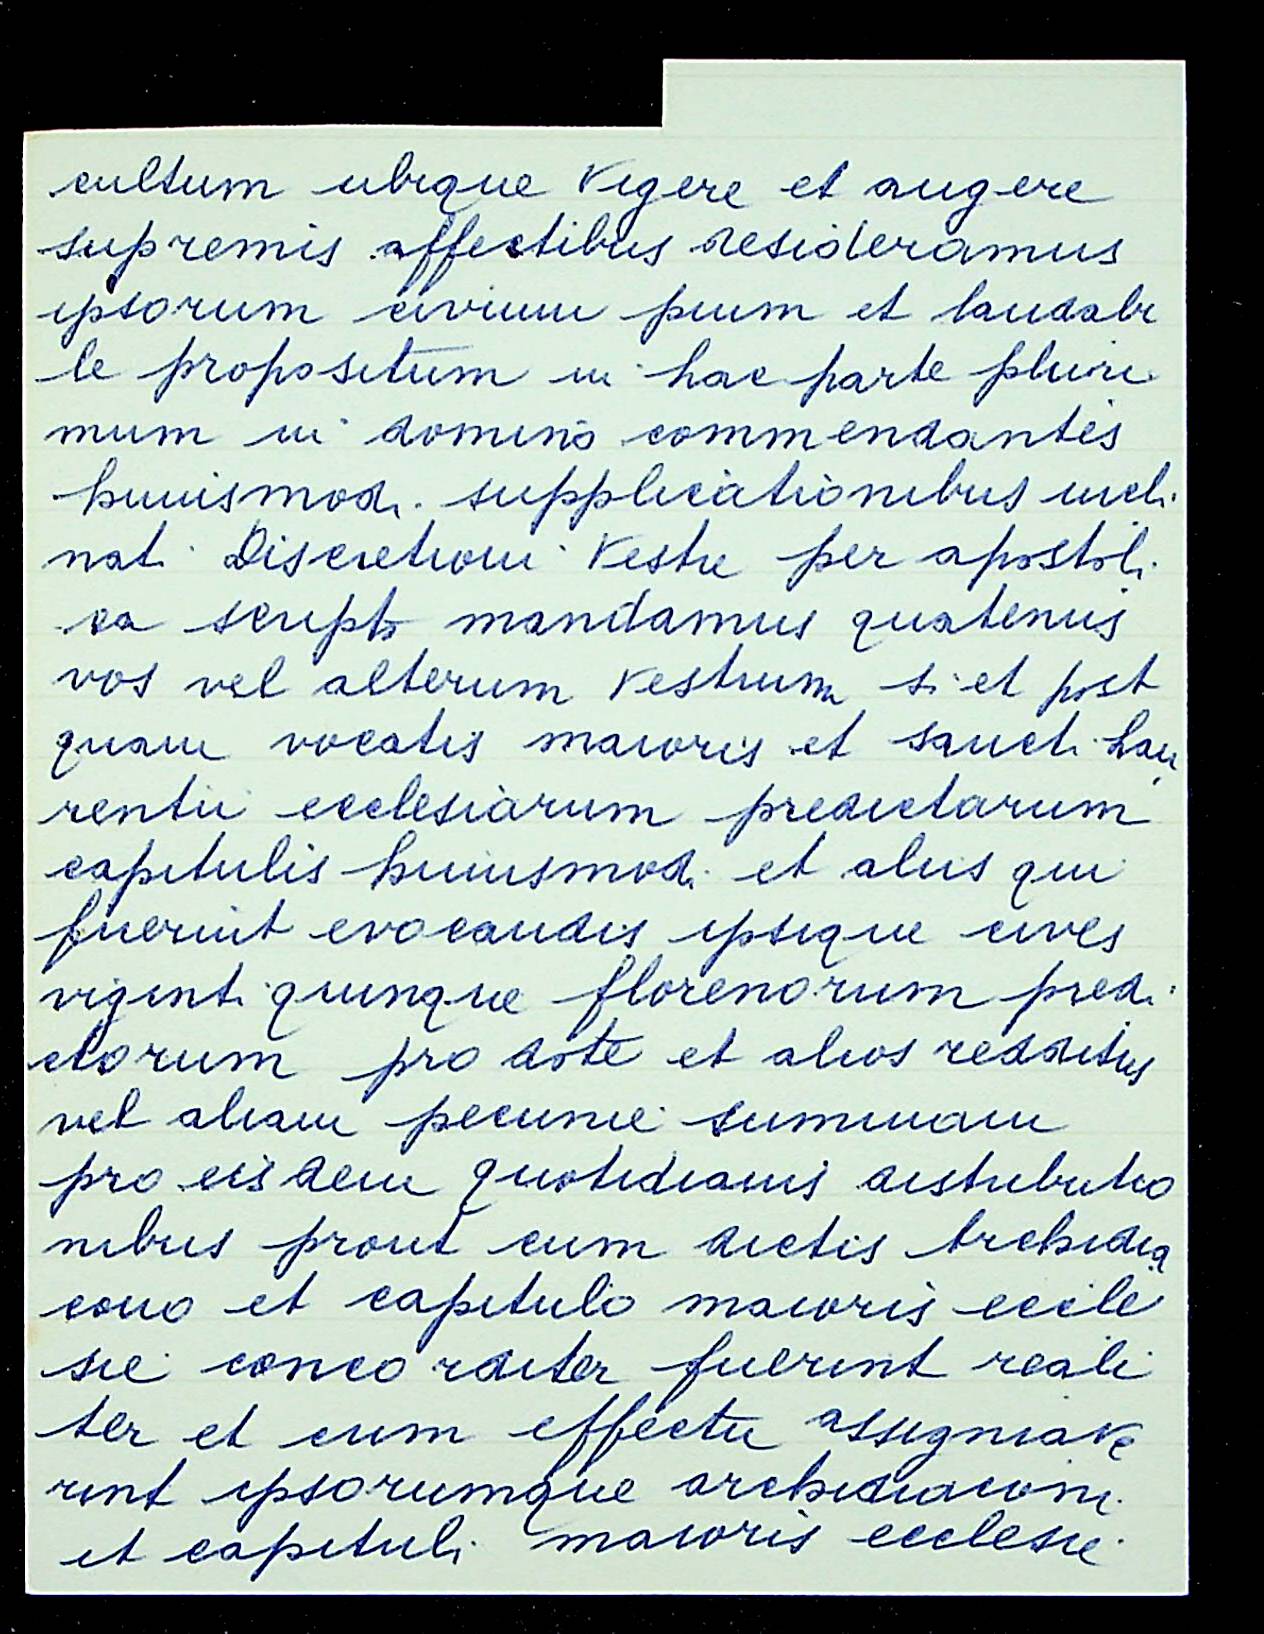 cultum ubique vigere et augere
supremis affectibus desideramus
ipsorum civium pium et laudabi
le propositum in hac parte pluri
mum in domino commendantes
huiusmodi supplicationibus incli
nati Discretioni vestre per apostoli
ca scripta mandamus quatenus
vos vel alterum vestrum si et post
quam vocatis maioris et sancti Lau
rentii ecclesiarum predictarum
capitulis huiusmodi et aliis qui
fuerint evocandis ipsique cives
viginti quinque florenorum predi
ctorum pro dote et alios redditus
vel aliam pecunie summam
pro eisdem quotidianis distributio
nibus prout cum dictis Archidia
cono et capitulo maioris eccle
sie concorditer fuerint reali
ter et cum effectu assignave
rint ipsorumque archidiaconi
et capituli maioris ecclesie